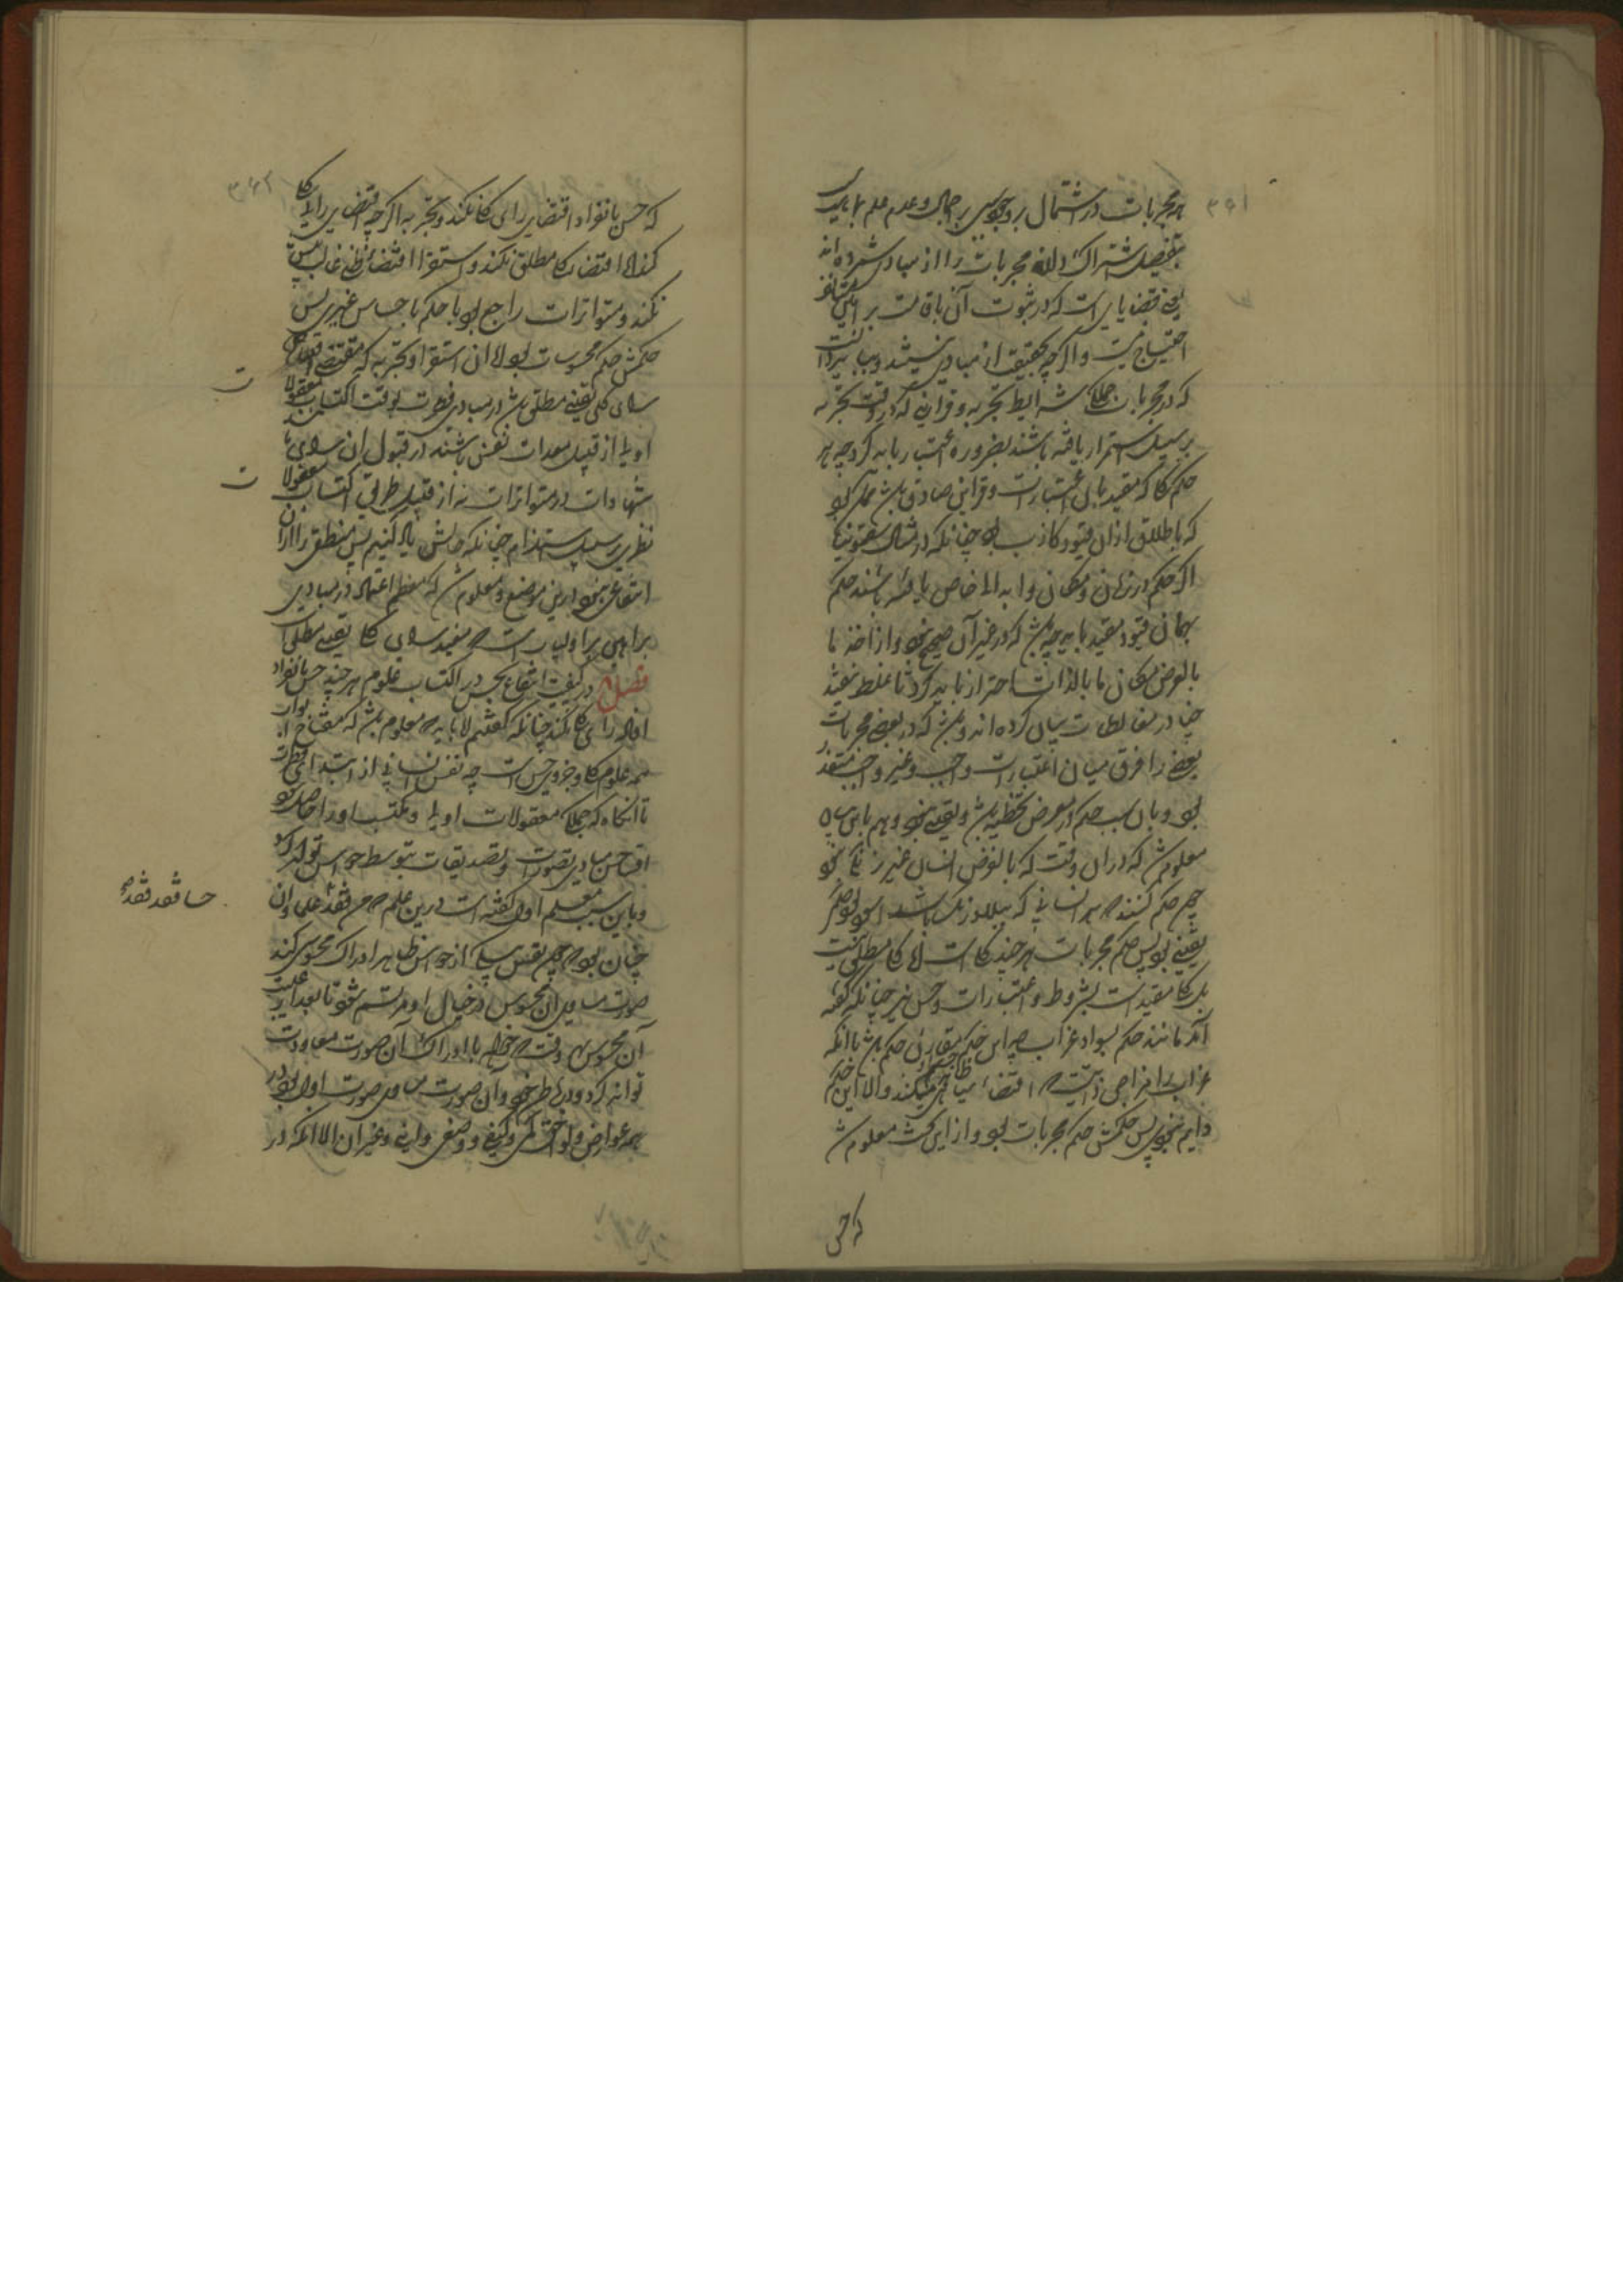 ۳۶۱
هر مجربات در اشتمال بر وجود قیاسی بر اجمال و عدم علم بماهیت
بتفصیل اشتراک دارند مجربات را از مبادی شمرده‌اند
یعنی قضایایی است که در ثبوت آن باقامت براهین
احتیاج نیست و اگرچه بحقیقت از مبادی نیستند و بباید دانست
که در مجربات جملگی شرایط تجربه و قراینی که در وقت تجربه
بر سبیل استمرار یافته باشند بضرورت اعتبار باید کرد چه هر
حکم کلی که مقید بآن اعتبارات و قراین صادق باشد ممکن بود
که باطلاق از آن قیود کاذب بود چنانکه در مثال سقمونیا
اگر حکم در زمان و مکان و ابدانی خاص یافته باشند حکم
بهمان قیود مقید باید چه باشد که در غیر آن صحیح نبود و از اخذ ما
بالعرض مکان ما بالذات احتراز باید کرد تا غلط نیفتد
چنانکه در مغالطات بیان کرده‌اند و باشد که در بعضی مجربات
بعضی را فرق میان اعتبارات واجب و غیر واجب متعذر
بود و بآن سبب حکم در معرض تخطئه باشد و یقینی نبود و هم باین سیاق
معلوم شد که در آن وقت که بالفرض انسان غیر زنگی نبود
چون حکم کنند که هر انسانی که بیلاد زنگ باشد اسود بود حکم
یقینی بود پس حکم مجربات هر چند کلی است اما کلی مطلق نیست
بلکه کلی مقید است بشروط و اعتبارات و حس نیز چنانکه گفته
آمد مانند حکم بسواد غراب چه این حکم مقارن حکم باشد بآنکه
غراب را مزاجی ذاتیست که اقتضاء سیاهی ظاهر جسمش میکند والا این حکم
دایم نبود پس حکمش حکم مجربات بود و از این بحث معلوم شد
که حس
۳۶۲
که حس بانفراد اقتضای رای کلی نکند و تجربه اگرچه اقتضای رای کلی
کند اما اقتضاء کلی مطلق نکند و استقرا اقتضاء ظنی غالب بیش
نکند و متواترات راجع بود با حکم باحساس غیری پس
حکمش حکم محسوسات بود الا آن استقرا و تجربه که مقتضی اقتناص
رای کلی یقینی مطلق باشد در مبادی فطرت بوقت اکتساب معقولات
اولی از قبیل معدات نفس باشند در قبول آن رای با
شهادات در متواترات نه از قبیل طرق اکتساب معقولات
نظری بر سبیل استلزام چنانکه بیانش یاد کنیم پس منطقی را از آن
انتفاعی نبود درین موضع و معلوم شد که معظم اعتماد در مبادی
براهین بر اولیات است که مفید رای کلی یقینی مطلق‌اند
فصل در کیفیت انتفاع بحس در اکتساب علوم هر چند حس بانفراد
افادهٔ رای کلی نکند چنانکه گفتیم اما باید که معلوم باشد که مفتاح ابواب
همه علوم کلی و جزوی حس است چه نفس انسانی از ابتدای فطرت
تا آنگاه که جملگی معقولات اولی و مکتسب او را حاصل شود
اقتناص مبادی تصورات و تصدیقات بتوسط حواس تواند کرد
و باین سبب معلم اول گفته است درین علم که من فقد حسا فقد علما و آن
چنان بود که چون نفس بیکی از حواس ظاهر ادراک محسوسی کند
صورت مساوی آن محسوس در خیال او مرتسم شود تا بعد از غیبت
آن محسوس هر وقت که خواهد با ادراک آن صورت معاودت
تواند کرد و در خاطر آورد و آن صورت مساوی صورت اول بود در
همه عوارض و لواحق کمی و کیفی و وضعی و اینی و غیر آن الا آنکه در
ت
ت
حسا فقد فقد صح